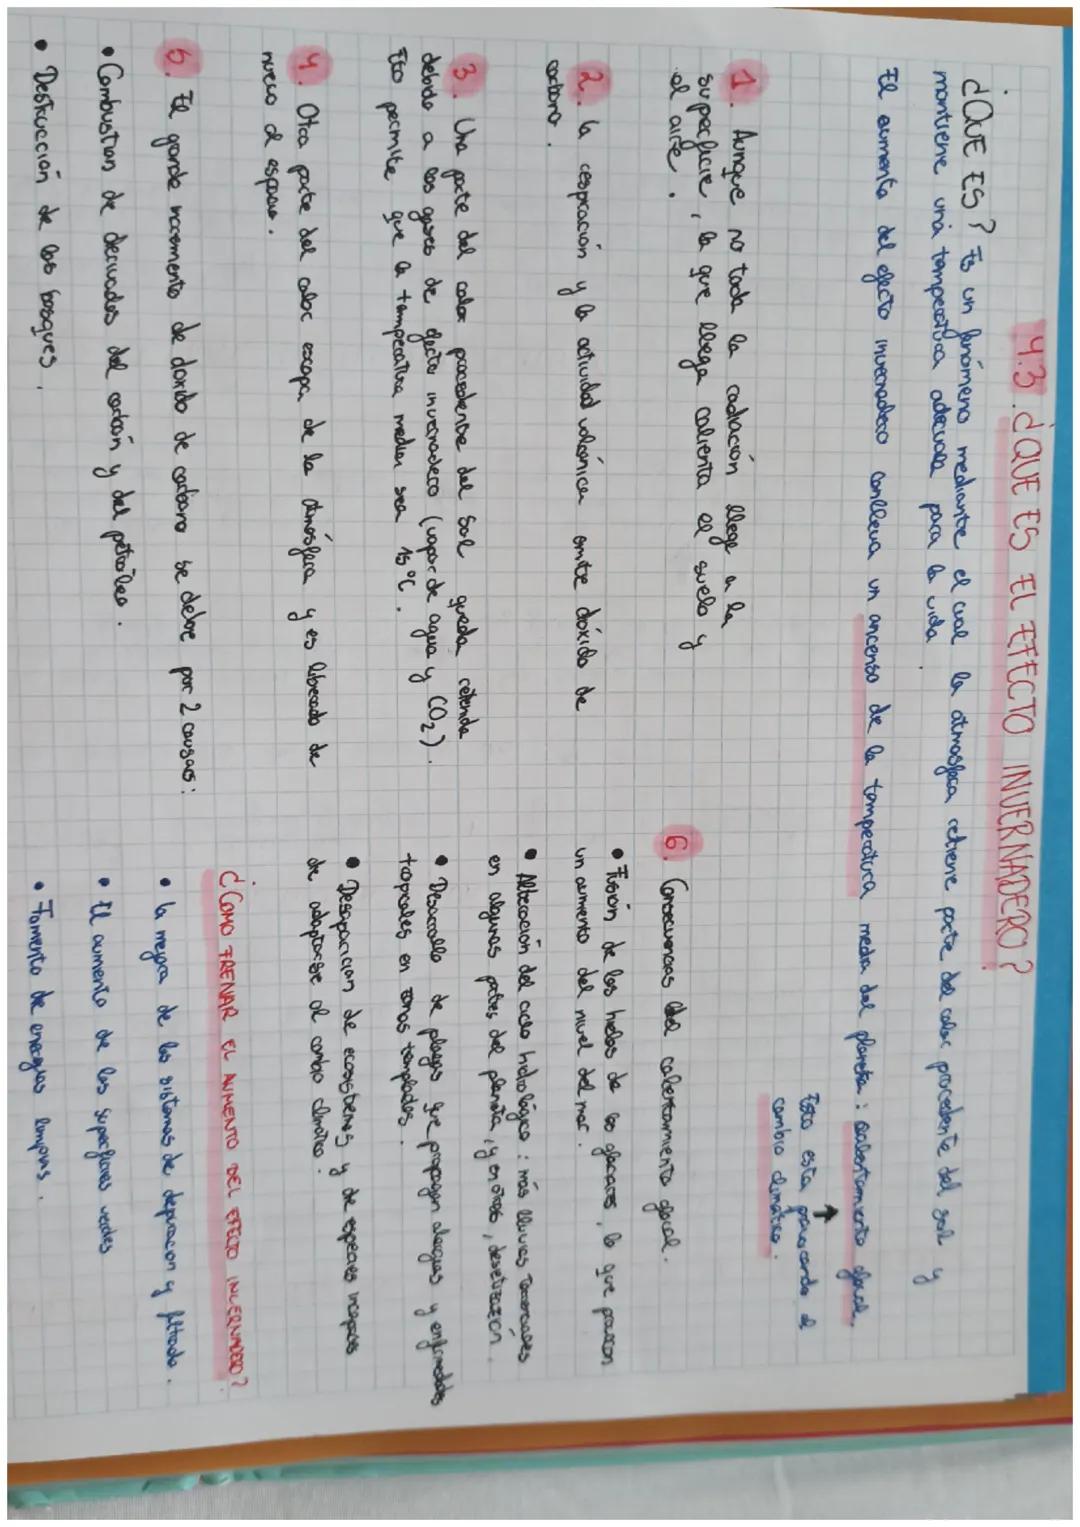 4.3. ¿QUE ES EL EFECTO INVERNADERO?
¿QUE ES? Es un fenómeno mediante el cual la atmosfera retiene parte del calor procedente del sol y
mantiene una temperatura adecuada para la vida.
El aumento del efecto invernadero conlleva un ancenso de la temperatura media del planeta: calentamiento glocal.
Esto esta provocando el
cambio climatico.
1. Aunque no toda la radiación llega a la
superficie, la que llega calienta el suelo y
el aire.
2. la respiración y la actividad volcánica emite dióxido de
carbono.
3. Una parte del calor procedente del Sol queda retenida
debido a los gases de efecto invernadero (vapor de agua y CO₂).
Esto permite que la temperatura median sea 15°C.
4. Otra parte del calor escapa de la atmósfera y es liberado de
nuevo al espacio.
5. El grande incremento de dioxido de carbono se debe por 2 causas:
• Combustion de derivados del carbón y del petroleo.
• Destrucción de los bosques.
6. Consecuencias del calentamiento glocal.
• Fusión de los hielos de los glaciares, lo que provocan
un aumento del nivel del mar.
• Alteración del ciclo hidrológico: más lluvias torrenciales
en algunas partes del planeta, y en otras, desertización.
• Desarrollo de plagas que propagan alergias y enfermedades
tropicales en zonas templadas.
• Desaparicion de ecosistemas y de especies incapaces
de adaptarse al cambio climático.
¿COMO FRENAR EL AUMENTO DEL EFECTO INVERNADERO?
• la mejora de los sistemas de depuracion y filtrado.
• El aumento de las superficies verdes
• Fomento de energias limpias.